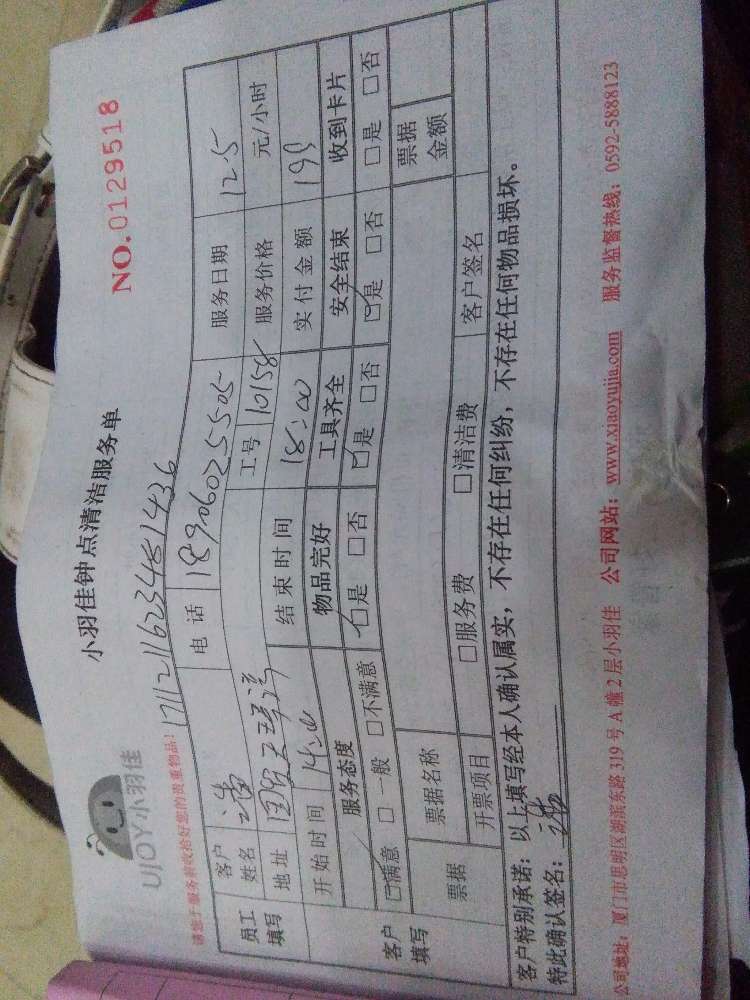 UJOY小羽佳
小羽佳钟点清洁服务单
NO.0129518
请您于服务前收拾好您的贵重物品！
1711211623481436
员工填写
客户姓名 潘 电话 18906025505 服务日期 12.5
地址 工号 10158 服务价格 元/小时
开始时间 14:00 结束时间 18:00 实付金额 199
客户填写
服务态度 物品完好 工具齐全 安全结束 收到卡片
☑满意 □一般 □不满意 ☑是 □否 ☑是 □否 ☑是 □否 □是 □否
票据 票据名称 票据金额
开票项目 □服务费 □清洁费 客户签名
客户特别承诺：以上填写经本人确认属实，不存在任何纠纷，不存在任何物品损坏。
特此确认签名：潘
公司地址：厦门市思明区湖滨东路319号A幢2层小羽佳 公司网站：www.xiaoyujia.com 服务监督热线：0592-5888123